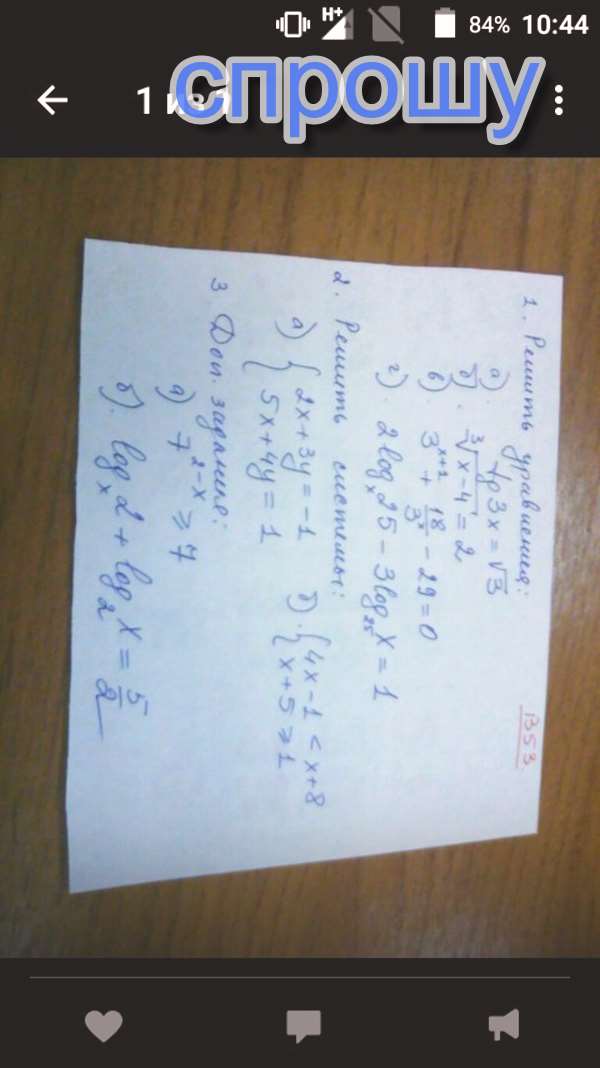 H+ 84% 10:44
1 из
спрошу
В53
1. Решить уравнения:
а). tg3x = √3
б). ³√x-4 = 2
в). 3^(x+1) + 18/3^x - 29 = 0
г). 2log_x 25 - 3log_25 x = 1
2. Решить системы:
а) { 2x+3y = -1 б). { 4x-1 < x+8
5x+4y = 1 x+5 ≥ 1
3 Доп. задание:
а) 7^(2-x) ≥ 7
б). log_x 2 + log_2 x = 5/2